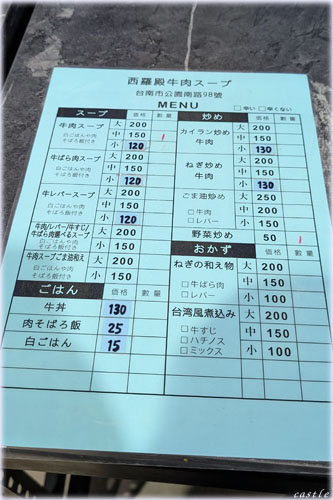 西羅殿牛肉スープ
台南市公園南路98號
MENU
□辛い □辛くない
スープ 価格 数量
牛肉スープ 大 200
白ごはんや肉 中 150 1
そぼろ飯付き 小 120
牛ばら肉スープ 大 200
白ごはんや肉 中 150
そぼろ飯付き 小 120
牛レバースープ 大 200
白ごはんや肉 中 150
そぼろ飯付き 小 120
牛肉/レバー/牛すじ/ 大 200
牛ばら肉選べるスープ
白ごはんや肉
そぼろ飯付き 中 150
牛肉スープごま油和え 大 200
白ごはんや肉
そぼろ飯付き 中 150
ごはん 価格 数量
牛丼 130
肉そぼろ飯 25
白ごはん 15
炒め 価格 数量
カイラン炒め 大 200
牛肉 中 150
小 130
ねぎ炒め 大 200
牛肉 中 150
小 130
ごま油炒め 大 250
□牛肉 中 200
□レバー 小 150
野菜炒め 50 1
おかず 価格 数量
ねぎの和え物 大 200
□牛ばら肉 中 150
□レバー 小 100
台湾風煮込み 大 200
□牛すじ 中 150
□ハチノス
□ミックス 小 100
castle